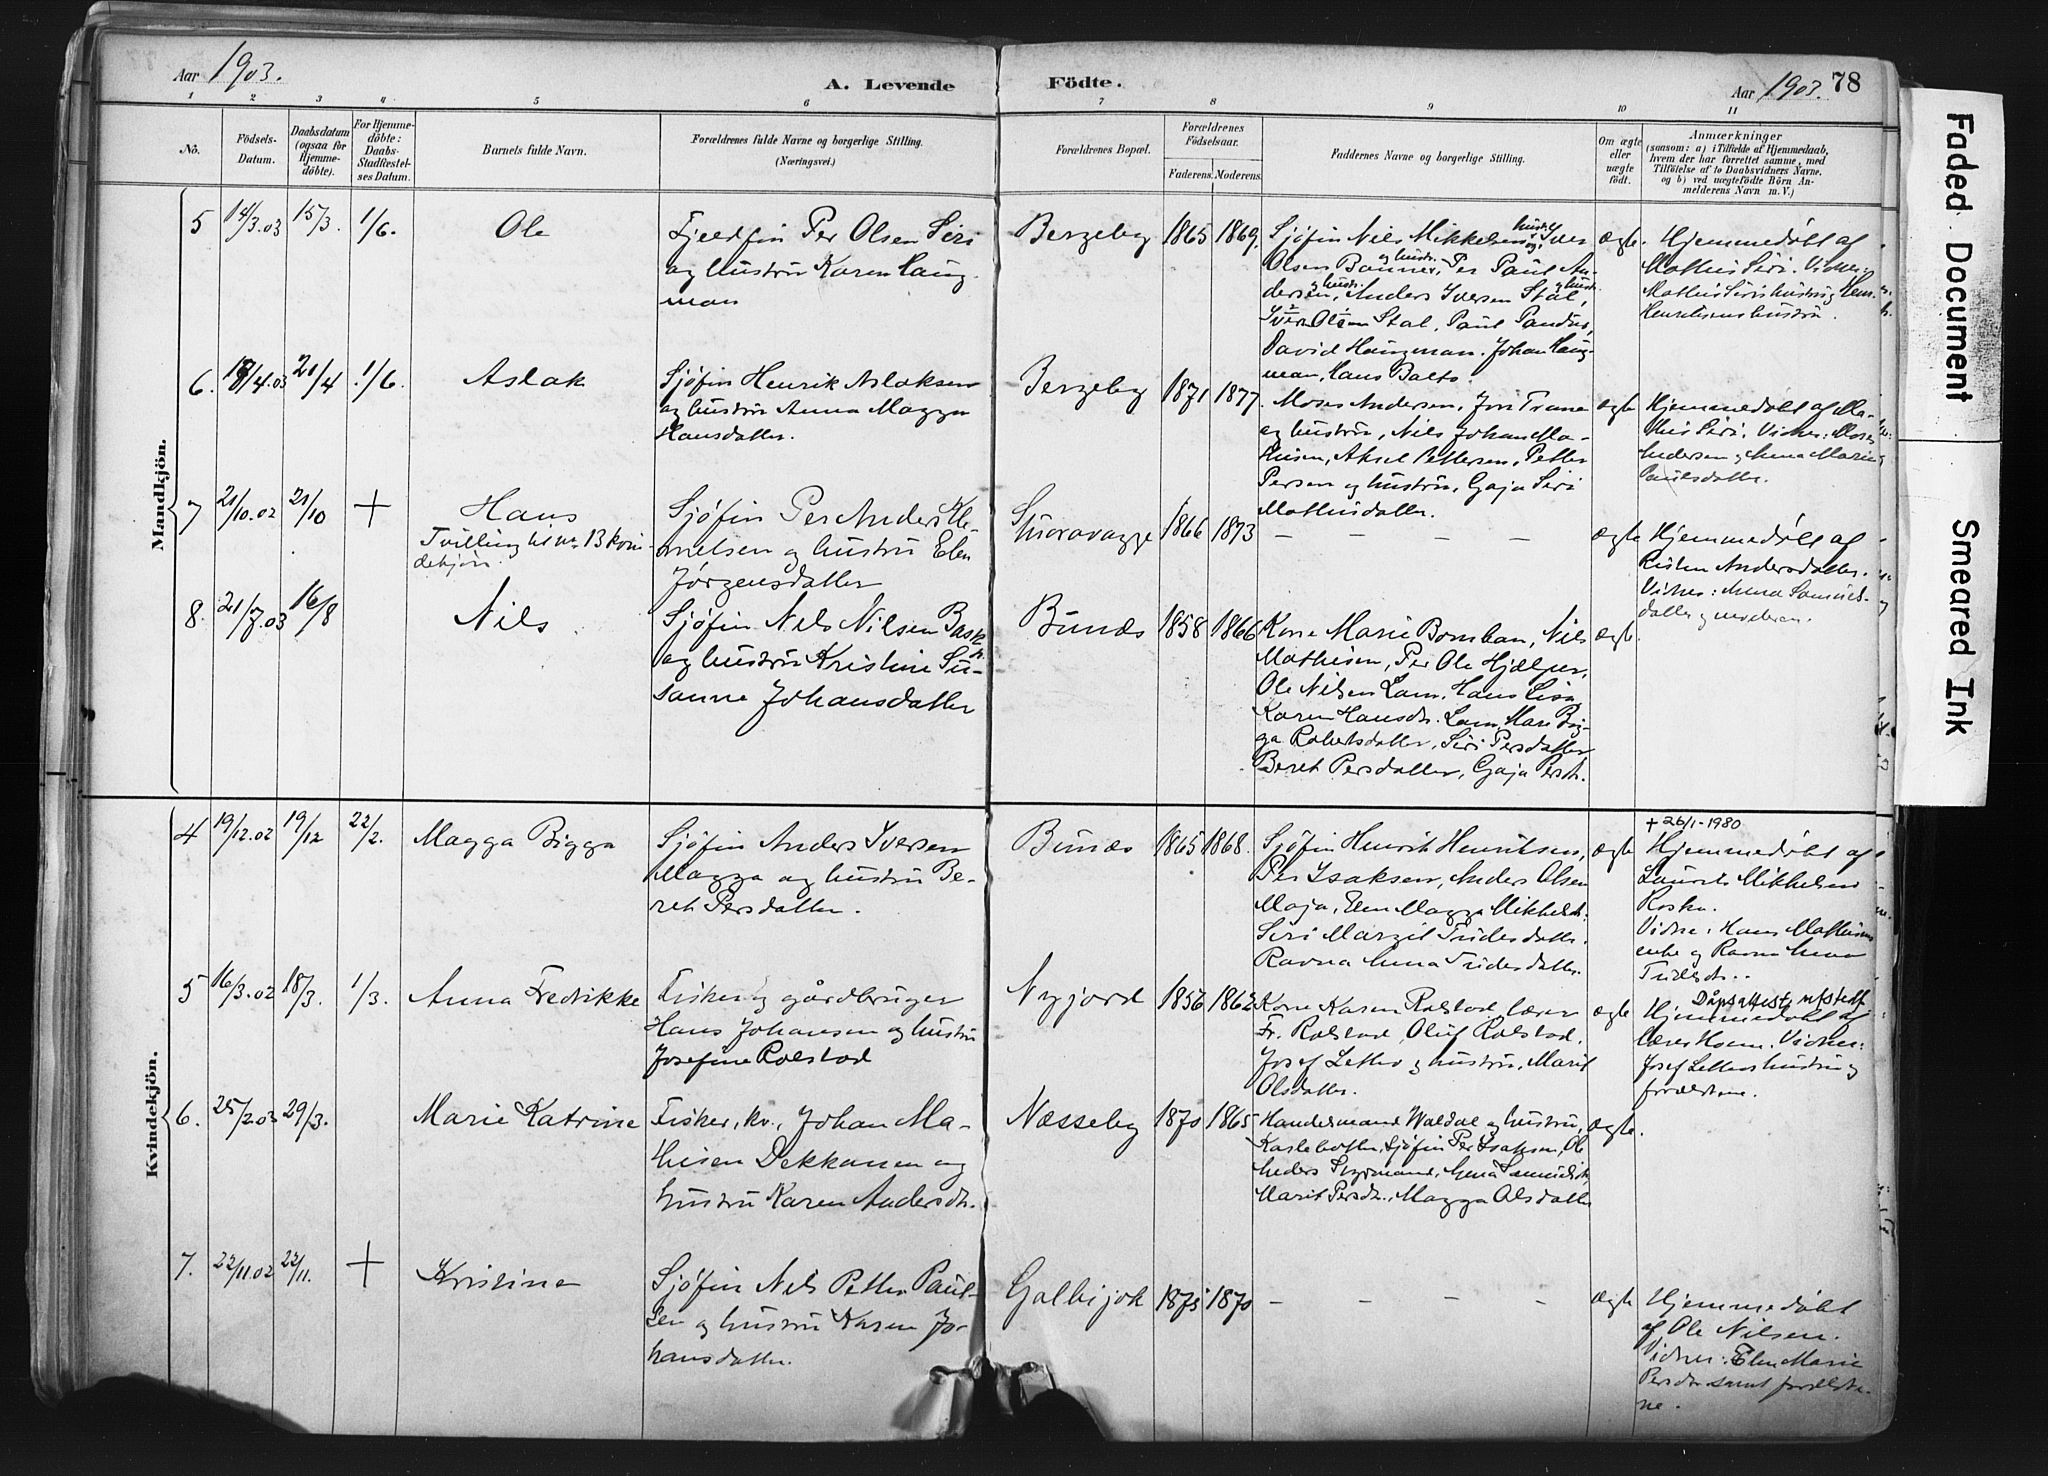 Aar 1903.
A. Levende
Födte.
Aar 1903. 78
1 2 3 4 5 6 7 8 9 10 11
No.
Födsels-
Datum.
Daabsdatum
(ogsaa for
Hjemme-
döbte).
For Hjemme-
döbte:
Daabs-
Stadfæstel-
ses Datum.
Barnets fulde Navn.
Forældrenes fulde Navne og borgerlige Stilling.
(Næringsvei.)
Forældrenes Bopæl.
Forældrenes
Födselsaar.
Faderens. Moderens.
Faddernes Navne og borgerlige Stilling.
Om ægte
eller
uægte
födt.
Anmærkninger
(saasom: a) i Tilfælde af Hjemmedaab,
hvem der har forrettet samme, med
Tilföielse af to Daabsvidners Navne,
og b) ved uægtefödte Börn An-
melderens Navn m. V.)
Mandkjön.
5
14/3.03
15/3.
1/6.
Ole
Fjeldfin Per Olsen Siri
og hustru Karen Haug-
man
Bergeby
1865
1869.
Sjöfin Nils Mikkelsen og hustru, Iver
Olsen Banner og hustr., Per Paul An-
dersen og hustr., Anders Iversen Stal og hustr.,
Iver Olsen Stal, Paul
David Haugman, Johan Haug-
man, Hans Balto.
ægte.
Hjemmedøbt af
Mathis Siri. Vidner:
Mathis Siris hustru og Hen.
Henriksens hustru.
6.
18/4.03
21/4
1/6.
Aslak
Sjöfin Henrik Aslaksen
og hustru Anna Magga
Hansdatter.
Bergeby
1871
1877.
Moses Andersen, Jon Trane
og hustru, Nils Johan Ma-
thisen, Aksel Pettersen, Petter
Persen og hustru, Gaja Siri
Mathisdatter.
ægte
Hjemmedøbt af Ma-
this Siri. Vidner: Moses
Andersen og Anna Marie
Paulsdatter.
7
21/10.02
21/10
+
Hans
Tvilling til nr. 13 kvin-
dekjøn.
Sjöfin Per Anders Kle-
metsen og hustru Elen
Jørgensdatter
Stuoravagge
1866
1873
— — — —
ægte
Hjemmedøbt af
Risten Andersdatter.
Vidner: Anna Samuels-
datter og moderen.
8.
21/7.03
16/8
Nils
Sjöfin Nils Nilsen Bask
og hustru Kristine Su-
sanne Johansdatter
Bunæs
1858
1866
Kone Marie Bomban, Nils
Mathisen, Per Ole Hjælper,
Ole Nilsen Lam, Hans
Karen Hansdr. Lam, Mari Big-
ga Robertsdatter, Siri Persdatter
Beret Persdatter, Gaja Persdr.
ægte.
Kvindekjön.
4
19/12.02
19/12
22/2.
Magga Bigga
Sjöfin Anders Iversen
Magga og hustru Be-
ret Persdatter.
Bunæs
1865
1868.
Sjöfin Henrik Henriksen,
Per Isaksen, Anders Olsen
Maja, Elen Magga Mikkelsdr.
Siri Margit Fridesdatter.
Ravna Anna Fridesdatter.
ægte
+ 26/1-1980
Hjemmedøbt af
Laurits Mikkelsen
Vidne: Hans Mathisens
enke og Ravna Anna
Fridesdr.
5
16/3.02
18/3.
1/3.
Anna Fredrikke
Fisker og gårdbruger
Hans Johansen og hustru
Josefine Rolstad
Nyjord
1856
1862
Kone Karen Rolstad, lærer
Fr. Rolstad, Oluf Rolstad,
Josef Letto og hustru, Marit
Olsdatter.
ægte
Dåpsattest utstedt
Hjemmedøbt af
lærer Hoem. Vidner:
Josef Lettos hustru og
forældrene.
6.
25/2.03
29/3.
Marie Katrine
Fisker, kv., Johan Ma-
thisen Dekkanen og
hustru Karen Andersdr.
Næsseby
1870
1865
Handelsmand Waldal og hustru,
Sjöfin Per Isaksen, Ole
Anders Anna Samuelsdr.
Marit Persdr., Magga Olsdatter
ægte.
7.
22/11.02
22/11.
+
Kristine
Sjöfin Nils Petter Paul-
sen og hustru Karen Jo-
hansdatter.
Galbijok
1875
1870
— — — —
ægte
Hjemmedøbt
af Ole Nilsen.
Vidner: Elen Marie
Persdr. samt forældre-
ne.
Faded Document
Smeared Ink